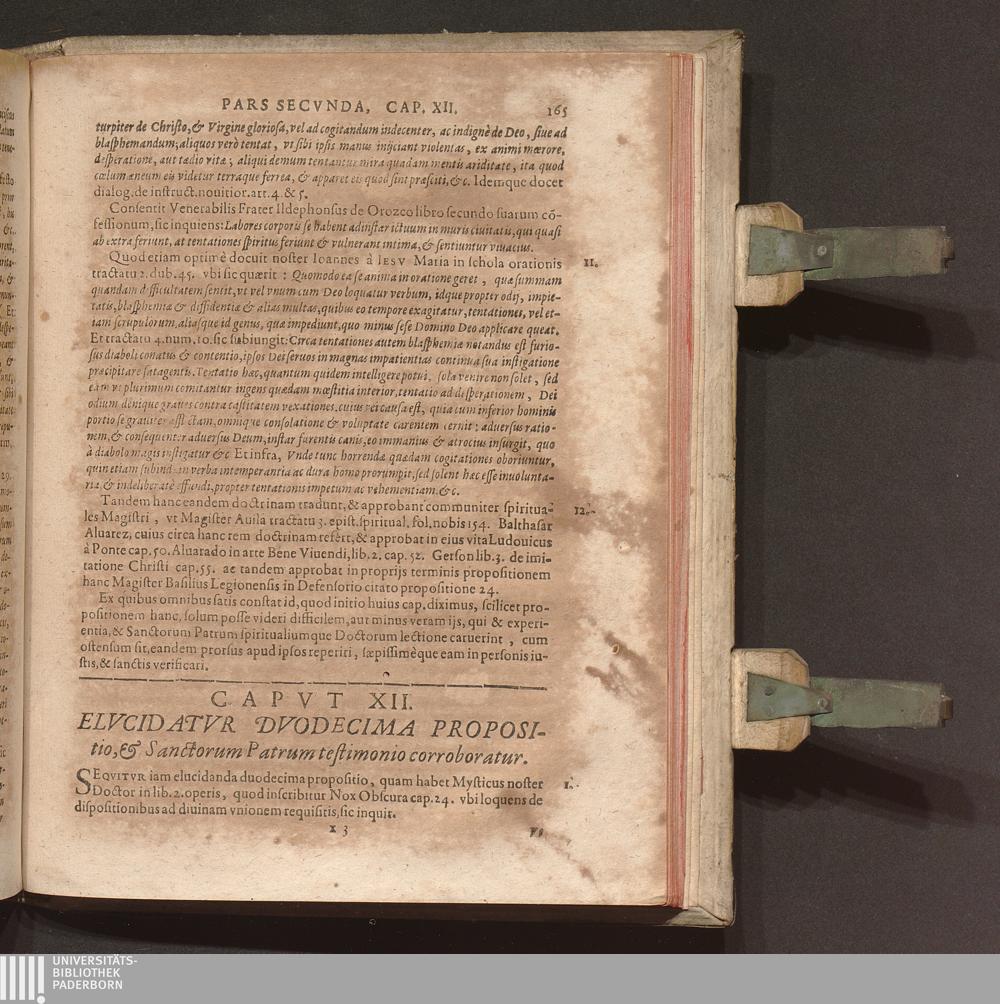 PARS SECVNDA, CAP. XII. 165
turpiter de Christo, & Virgine gloriosa, vel ad cogitandum indecenter, ac indignè de Deo, siue ad
blasphemandum; aliquos verò tentat, vt sibi ipsis manus inijciant violentas, ex animi mœrore,
desperatione, aut tædio vitæ; aliqui demum tentantur mira quadam mentis ariditate, ita quod
cœlum æneum eis videtur terraque ferrea, & apparet eis quod sint præsciti, &c. Idemque docet
dialog. de instruct. nouitior. art. 4. & 5.
Consentit Venerabilis Frater Ildephonsus de Orozco libro secundo suarum cõ-
fessionum, sic inquiens: Labores corporis se habent ad instar ictuum in muris ciuitatis, qui quasi
ab extra feriunt, at tentationes spiritus feriunt & vulnerant intima, & sentiuntur viuacius.
Quod etiam optimè docuit noster Ioannes à IESV Maria in schola orationis 11.
tractatu 2. dub. 45. vbi sic quærit: Quomodo ea se anima in oratione geret, quæ summam
quandam difficultatem sentit, vt vel vnum cum Deo loquatur verbum, idque propter odij, impie-
tatis, blasphemiæ & diffidentiæ & alias multas, quibus eo tempore exagitatur, tentationes, vel et-
iam scrupulorum, aliasque id genus, quæ impediunt, quo minus sese Domino Deo applicare queat.
Et tractatu 4. num. 10. sic subiungit: Circa tentationes autem blasphemiæ notandus est furio-
sus diaboli conatus & contentio, ipsos Dei seruos in magnas impatientias continua sua instigatione
præcipitare satagentis. Tentatio hæc, quantum quidem intelligere potui, sola venire non solet, sed
eam vt plurimum comitantur ingens quædam mœstitia interior, tentatio ad desperationem, Dei
odium denique graues contra castitatem vexationes. cuius rei causa est, quia cum inferior hominis
portio se grauiter afflictam, omnique consolatione & voluptate carentem cernit: aduersus ratio-
nem, & consequenter aduersus Deum, instar furentis canis, eo immanius & atrocius insurgit, quo
à diabolo magis instigatur &c. Et infra, Vnde tunc horrendæ quædam cogitationes oboriuntur,
quin etiam subinde in verba intemperantia ac dura homo prorumpit, sed solent hæc esse inuolunta-
ria, & indeliberatè effundi, propter tentationis impetum ac vehementiam. &c.
Tandem hanc eandem doctrinam tradunt, & approbant communiter spiritua- 12.
les Magistri, vt Magister Auila tractatu 3. epist. spiritual. fol. nobis 154. Balthasar
Aluarez, cuius circa hanc rem doctrinam refert, & approbat in eius vita Ludouicus
à Ponte cap. 50. Aluarado in arte Bene Viuendi, lib. 2. cap. 52. Gerson lib. 3. de imi-
tatione Christi cap. 55. ac tandem approbat in proprijs terminis propositionem
hanc Magister Basilius Legionensis in Defensorio citato propositione 24.
Ex quibus omnibus satis constat id, quod initio huius cap. diximus, scilicet pro-
positionem hanc, solum posse videri difficilem, aut minus veram ijs, qui & experi-
entia, & Sanctorum Patrum spiritualiumque Doctorum lectione caruerint, cum
ostensum sit, eandem prorsus apud ipsos reperiri, sæpissimèque eam in personis iu-
stis, & sanctis verificari.
CAPVT XII.
ELVCIDATVR DVODECIMA PROPOSI-
tio, & Sanctorum Patrum testimonio corroboratur.
SEQVITVR iam elucidanda duodecima propositio, quam habet Mysticus noster 1.
Doctor in lib. 2. operis, quod inscribitur Nox Obscura cap. 24. vbi loquens de
dispositionibus ad diuinam vnionem requisitis, sic inquit.
X 3
UNIVERSITÄTS-
BIBLIOTHEK
PADERBORN